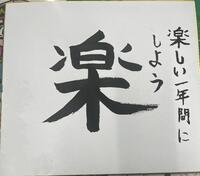 楽しい一年間に
しよう
楽